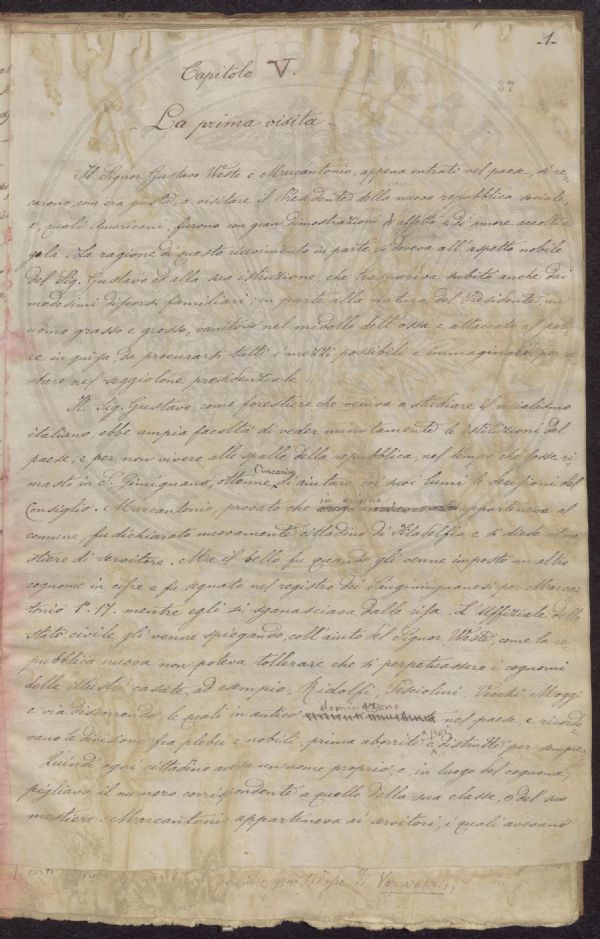 -1-
37
Capitolo V.
- La prima visita -
Il Signor Gustavo Weste e Marcantonio, appena entrati nel paese, si re-
carono, com'era giusto, a visitare il Presidente della nuova repubblica sociale,
e, quali Americani, furono con gran dimostrazioni di affetto e di onore accolti a
gala. La ragione di questo ricevimento in parte si doveva all'aspetto nobile
del Sig. Gustavo ed alla sua istruzione, che traspariva subito anche dai
modesimi discorsi familiari; in parte alla natura del Presidente, un
uomo grasso e grosso, vanitoso nel midollo dell'ossa e attaccato al pote-
re in guisa, da procurarsi tutti i mezzi possibili e immaginari per re-
stare nel seggiolone presidenziale.
Il Sig. Gustavo, come forestiere che veniva a studiare il socialismo
italiano, ebbe ampia facoltà di veder minutamente le istituzioni del
paese; e per non vivere alle spalle della repubblica, nel tempo che fosse ri-
masto in S. Gimignano, ottenne l'incarico di aiutare coi suoi lumi le decisioni del
Consiglio. Marcantonio, provato che in origine apparteneva al
comune, fu dichiarato nuovamente cittadino di Filadelfia e si diede al me-
stiere di servitore. Ma il bello fu quando gli venne imposto un altro
cognome in cifre e fu segnato nel registro dei Sangimignanesi per Marcan-
tonio 1°. 17. mentre egli si sganasciava dalle risa. L'Uffiziale dello
stato civile gli venne spiegando, coll'aiuto del Signor Weste, come la re-
pubblica nuova non poteva tollerare che si perpetuassero i cognomi
delle illustri casate, ad esempio, Ridolfi, Pesciolini, Vecchi, Moggi
e via discorrendo, le quali in antico dominavano nel paese, e ricorda-
vano le divisioni fra plebei e nobili, prima aborrite e poi distrutte per sempre.
Quindi ogni cittadino aveva un nome proprio, e, in luogo del cognome,
pigliava il numero corrispondente a quello della sua classe, o del suo
mestiere. Marcantonio apparteneva ai servitori, i quali avevano